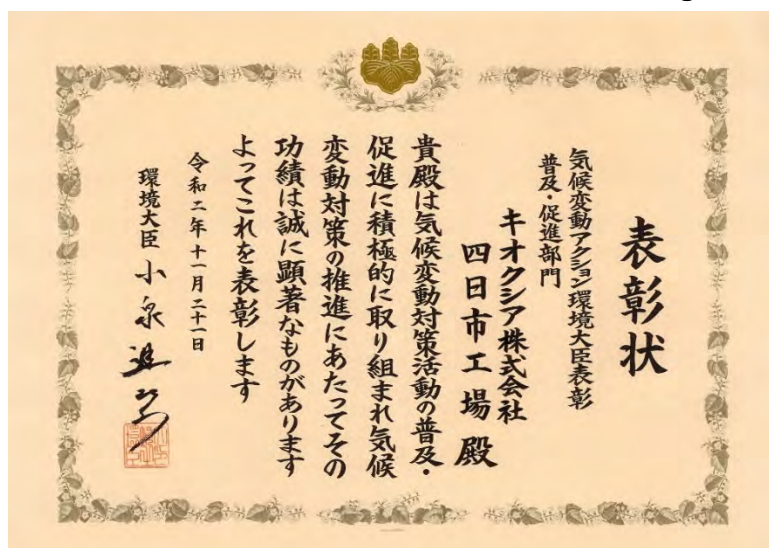 表彰状
気候変動アクション環境大臣表彰
普及・促進部門
キオクシア株式会社
四日市工場殿
貴殿は気候変動対策活動の普及・
促進に積極的に取り組まれ気候
変動対策の推進にあたってその
功績は誠に顕著なものがあります
よってこれを表彰します
令和二年十一月二十一日
環境大臣 小泉進次郎